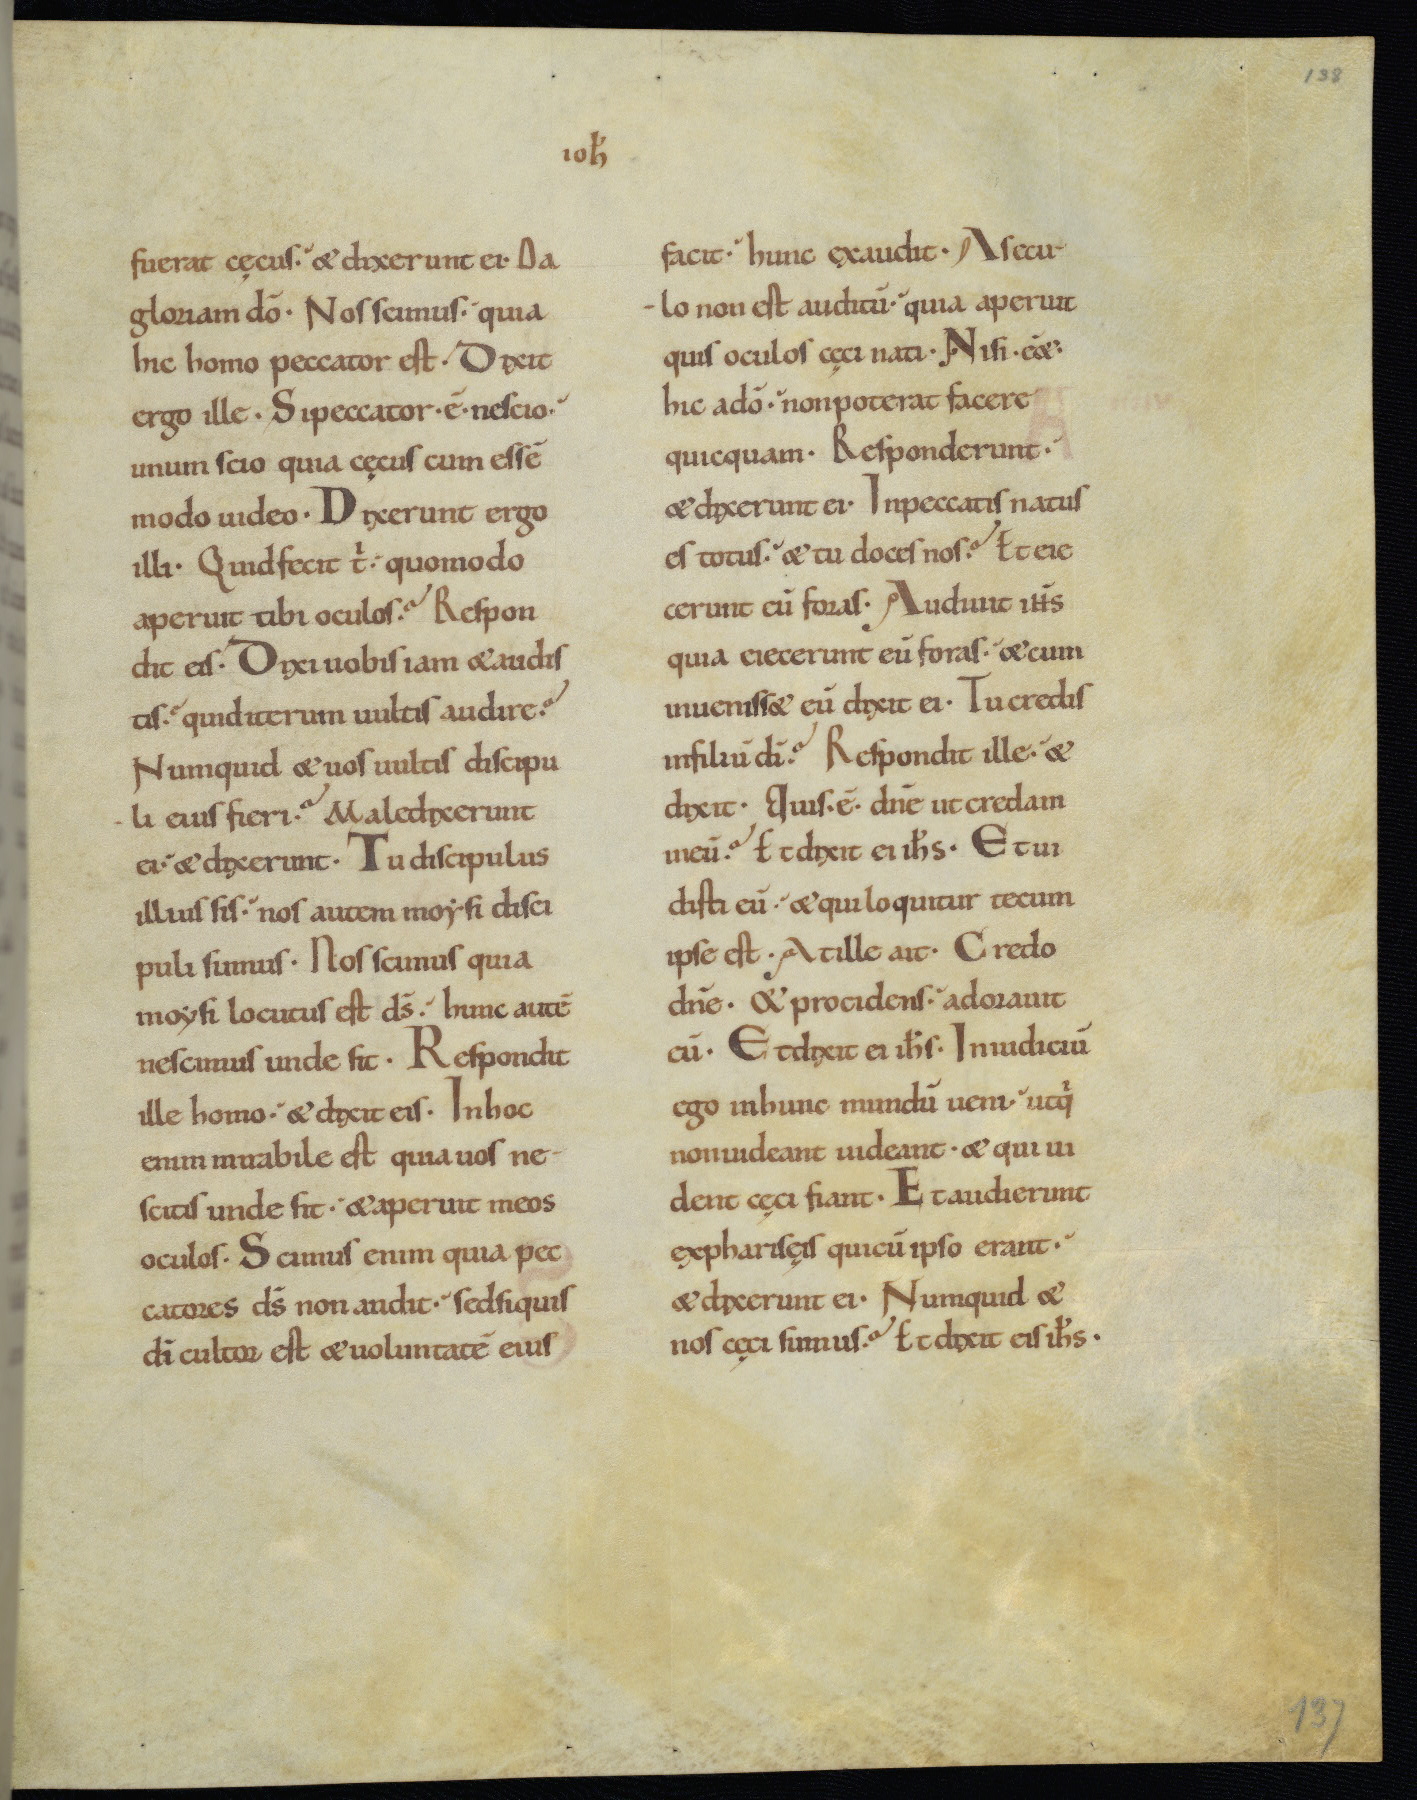 138
ioħ
fuerat cęcus· & dixerunt ei· Da
gloriam dō· Nos scimus· quia
hic homo peccator est· Dixit
ergo ille· Si peccator·ē·nescio·
unum scio quia cęcus cum essē
modo uideo· Dixerunt ergo
illi· Quid fecit t̍· quomodo
aperuit tibi oculos? Respon
dit eis· Dixi uobis iam & audis
tis· quid iterum uultis audire?
Numquid & uos uultis discipu
-li eius fieri? Maledixerunt
ei· & dixerunt· Tu discipulus
illius sis· nos autem moẏsi disci
puli sumus· Nos scimus quia
moẏsi locutus est dš· hunc autē
nescimus unde sit· Respondit
ille homo· & dixit eis· In hoc
enim mirabile est quia uos ne-
scitis unde sit· & aperuit meos
oculos· Scimus enim quia pec
catores dš non audit· sed si quis
dī cultor est & uoluntatē eius
facit· hunc exaudit· A secu-
-lo non est auditū· quia aperuit
quis oculos cęci nati· Nisi·ēē&·
hic a dō· non poterat facere
quicquam· Responderunt·
& dixerunt ei· In peccatis natus
es totus· & tu doces nos? Et eie
cerunt eū foras· Audiuit iħs
quia eiecerunt eū foras· & cum
inueniss& eū dixit ei· Tu credis
in filiū dī? Respondit ille· &
dixit· Quis·ē· dnē ut credam
in eū? Et dixit ei iħs· Et ui
disti eū· & qui loquitur tecum
ipse est· At ille ait· Credo
dnē· & procidens· adorauit
eū· Et dixit ei iħs· In iudiciū
ego in hunc mundū ueni· ut q̍
non uident uideant· & qui ui
dent cęci fiant· Et audierunt
ex pharisęis qui cū ipso erant·
& dixerunt ei· Numquid &
nos cęci sumus? Et dixit eis iħs·
137